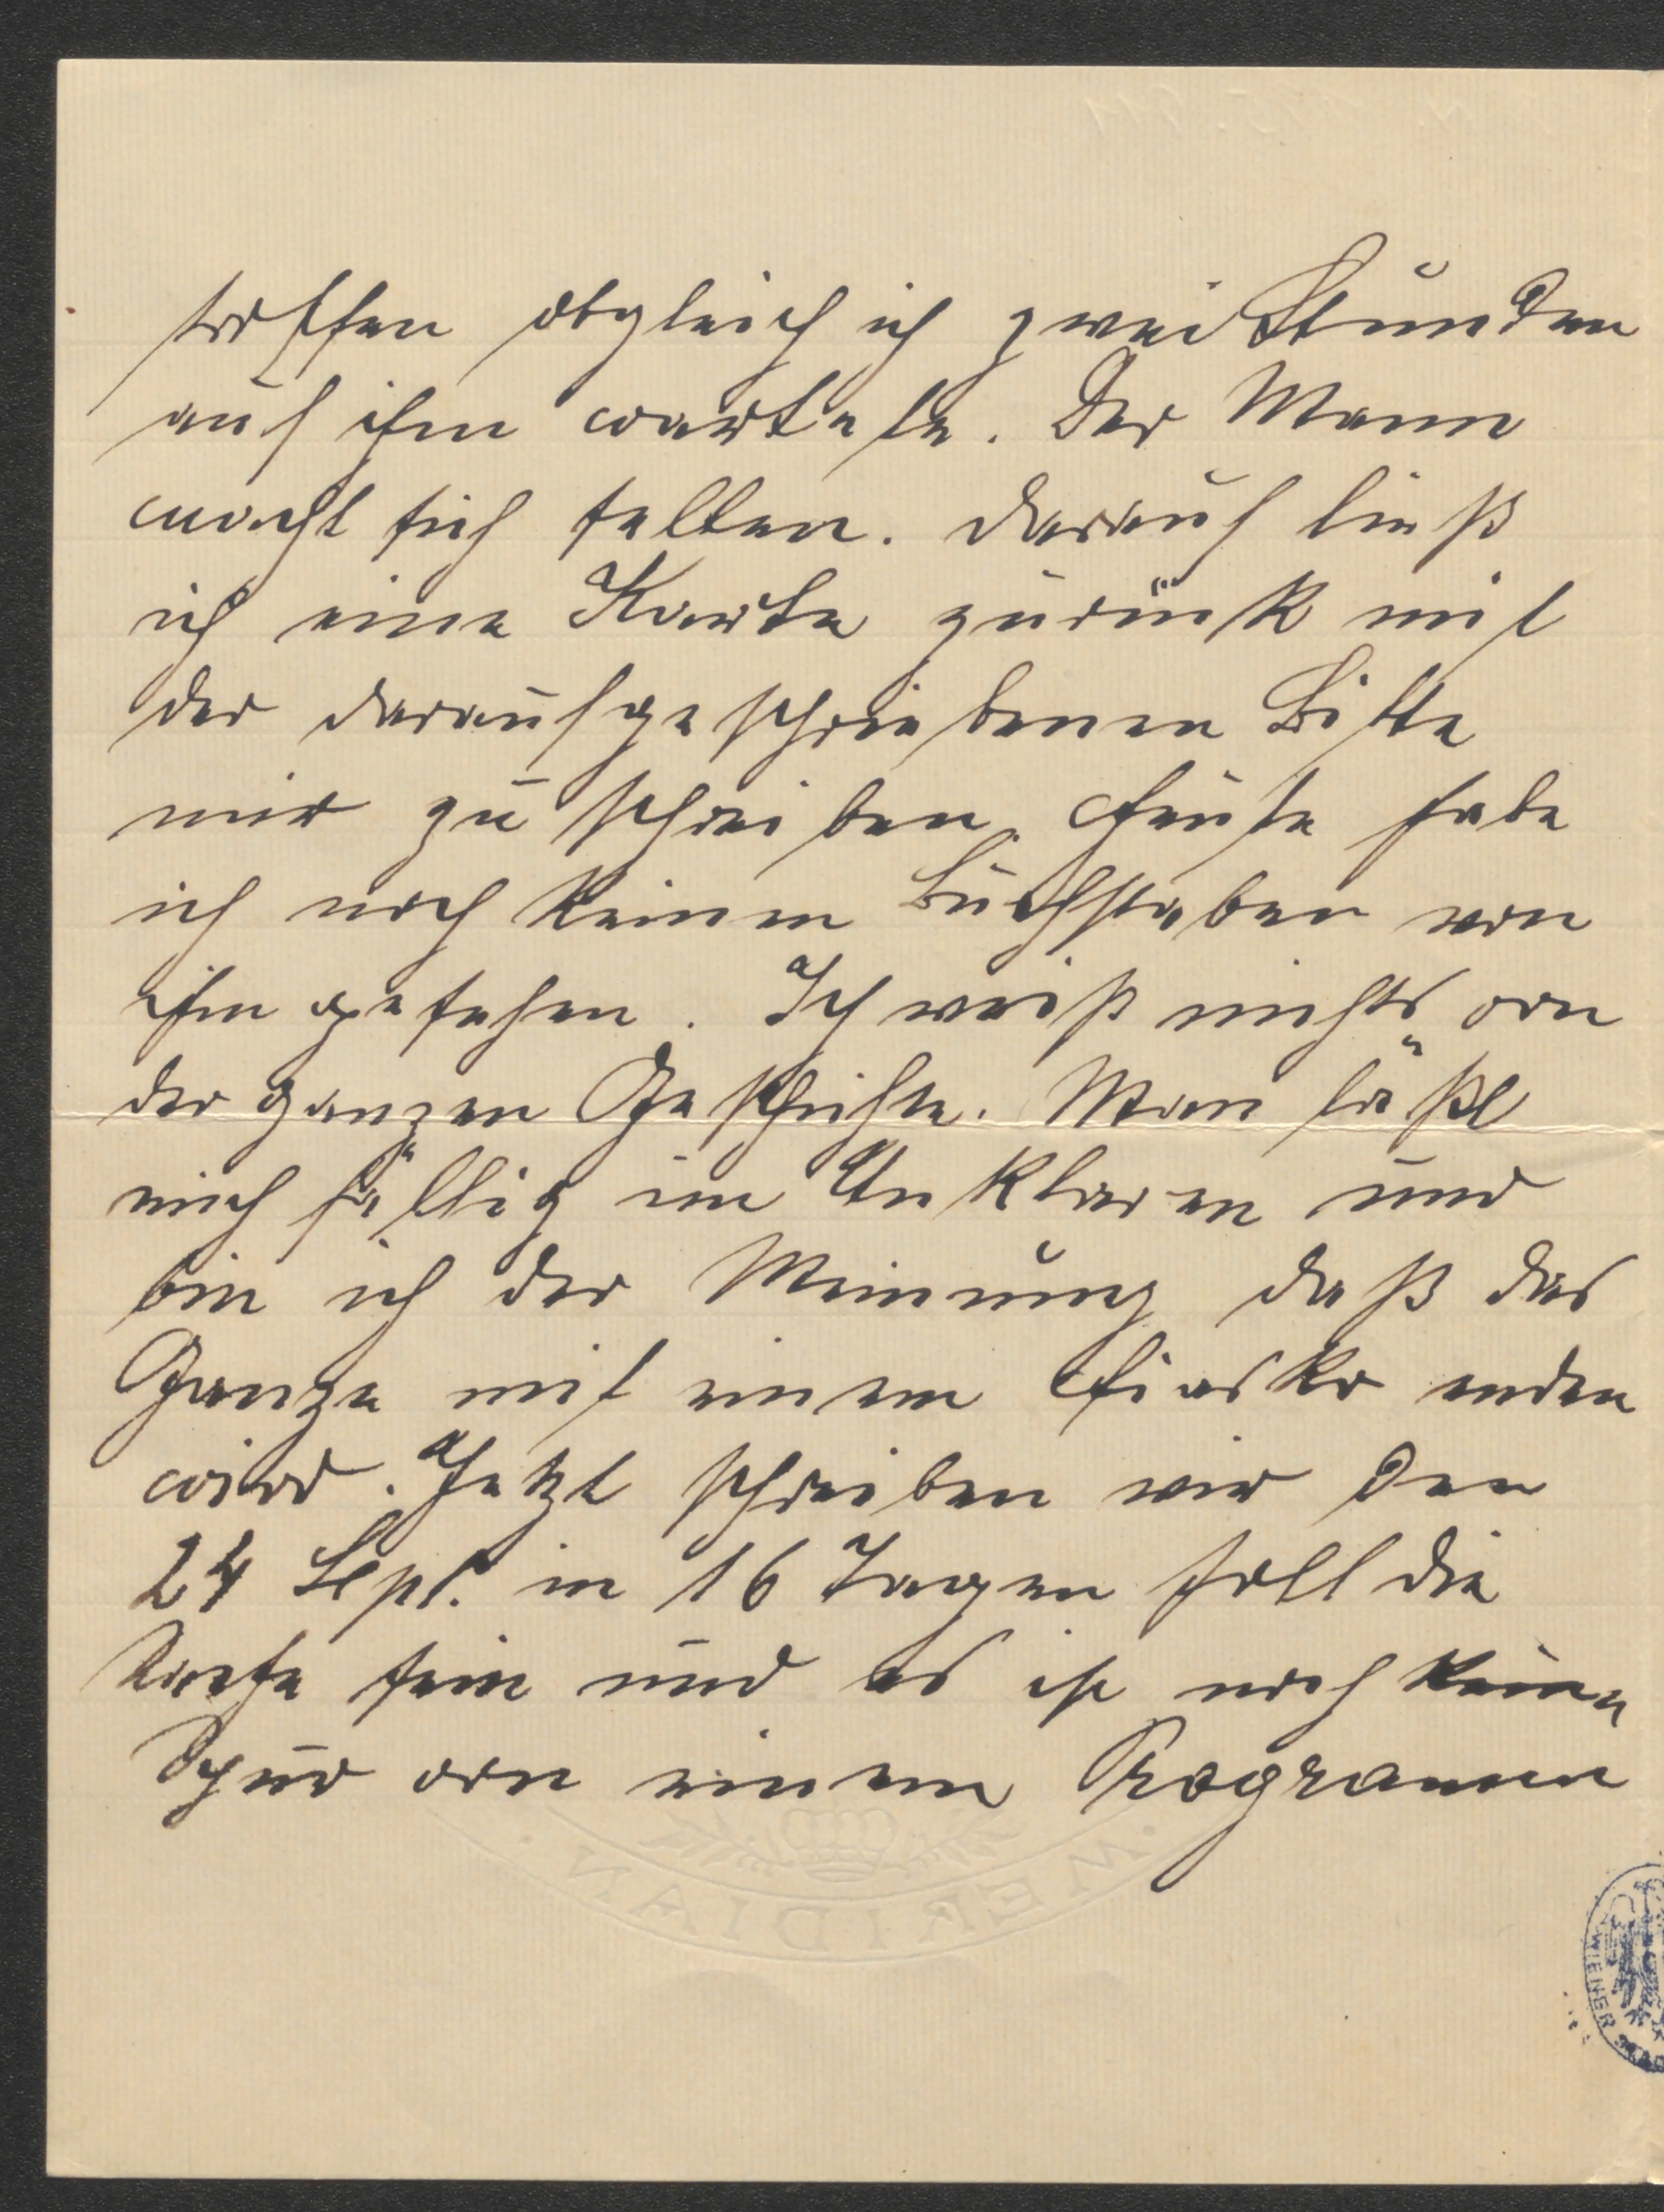 troffen obgleich ich zwei Stunden
auf ihn wartete. Der Mann
macht sich selten. Darauf ließ
ich eine Karte zurück mit
der daraufgeschriebenen Bitte
mir zu schreiben. Heute habe
ich noch keinen Buchstaben von
ihm gesehen. Ich weiß nichts von
der ganzen Geschichte. Man läßt
mich völlig im Unklaren und
bin ich der Meinung daß das
Ganze mit einem Fiasko enden
wird. Jetzt schreiben wir den
24 Sept. in 16 Tagen soll die
Sache sein und es ist noch keine
Spur von einem Programm
MERIDIAN
WIENER